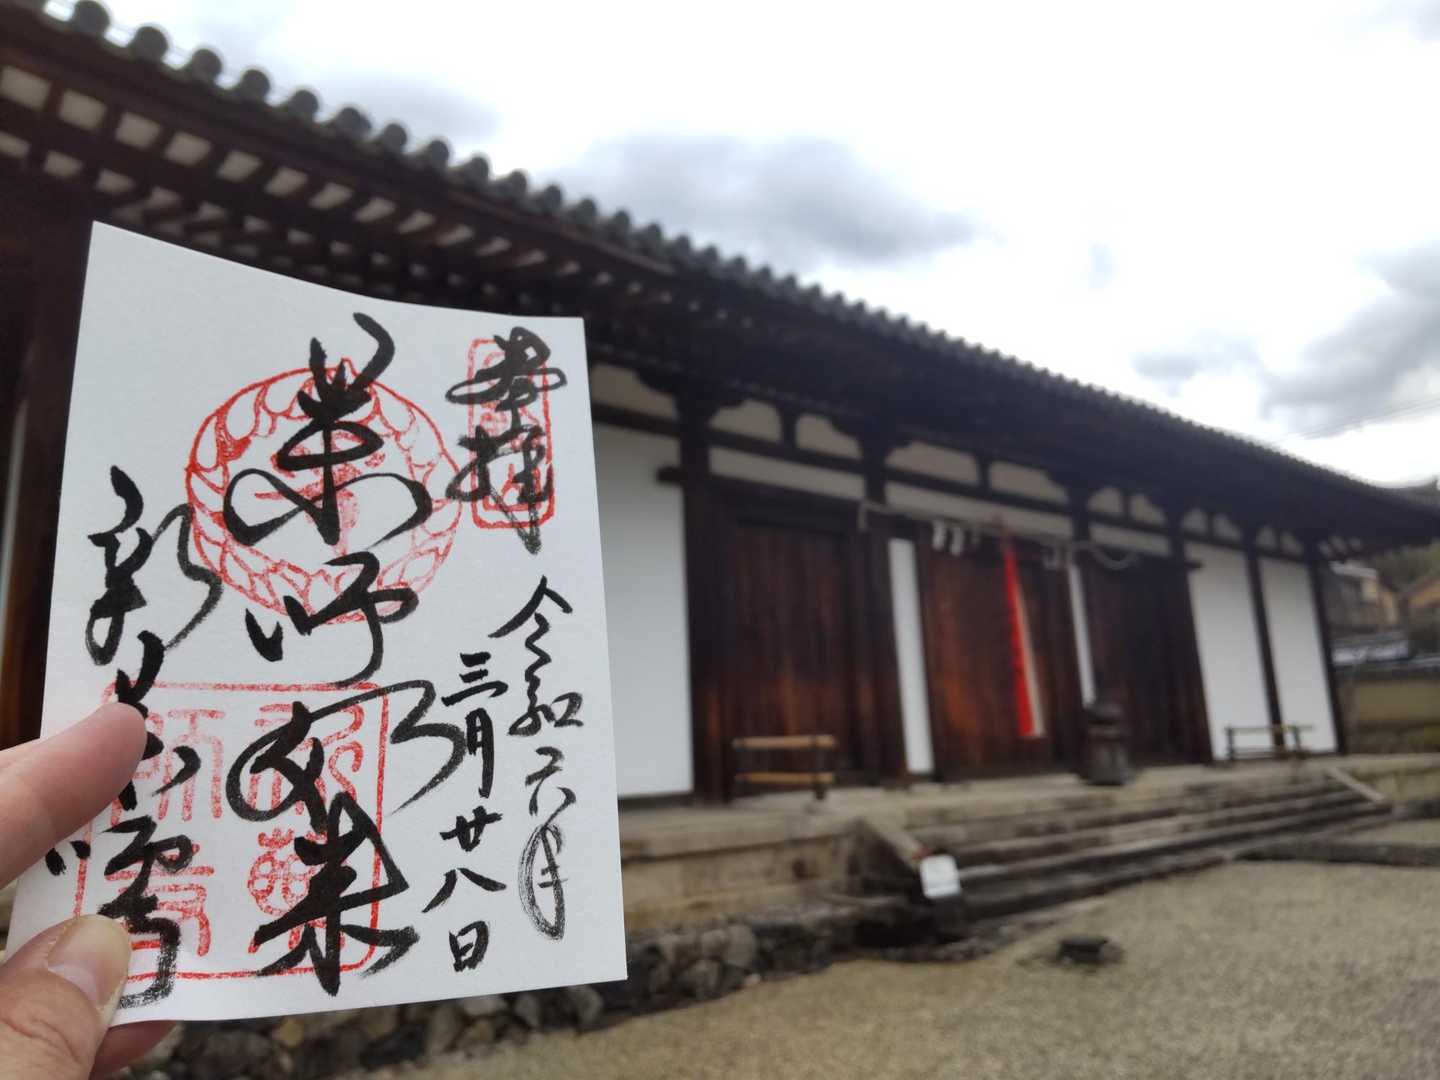 奉拝
令和六年
三月廿八日
薬師如来
新薬師寺